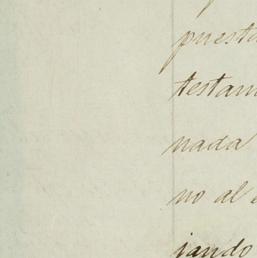 puesto
testam
nada
no al
jando